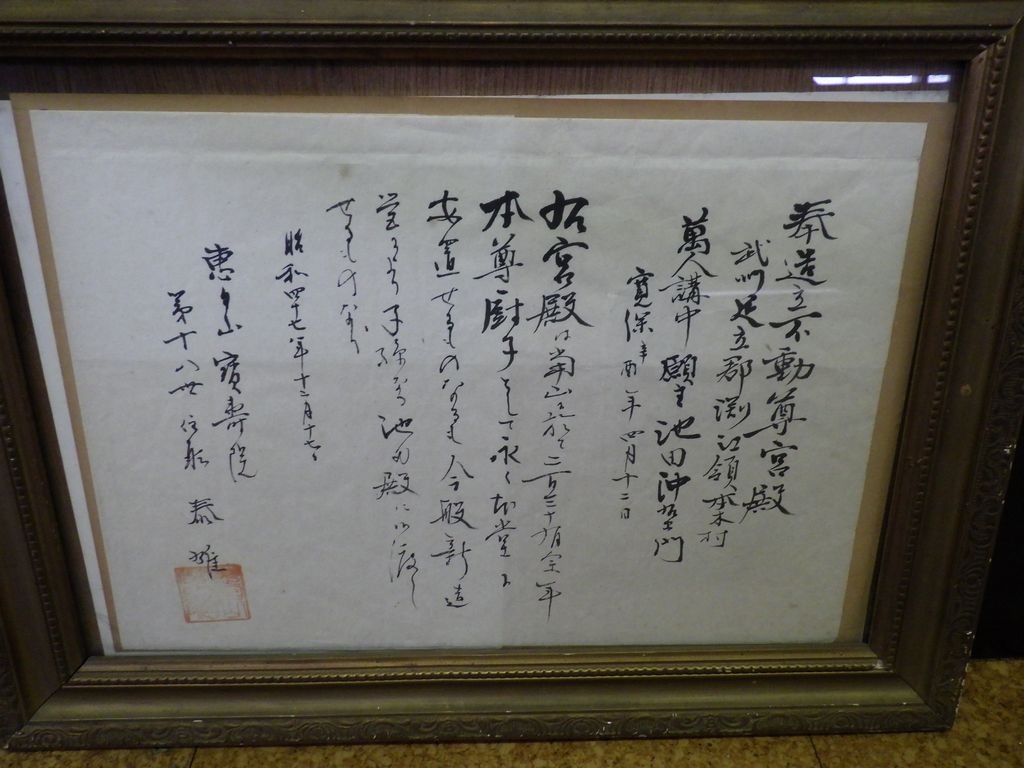 奉造立不動尊宮殿
武州足立郡渕江領栗木村
萬人講中 願主 池田沖右衛門
寛保辛酉年四月十二日
右宮殿は当山に於て二百三十有余年
本尊厨子として永く本堂に
安置せるものなるも今般新造
営により子孫なる池田殿にお渡し
せるものなり
昭和四十七年十二月十七日
恵日山 寶寿院
第十八世 住職 泰雄